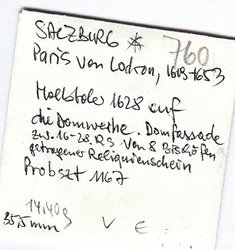 SALZBURG * 760
Paris von Lodron, 1619-1653
Halbtaler 1628 auf
die Domweihe. Domfassade
zw. 16-28. Rs von 8 Bischöfen
getragener Reliquienschrein
Probszt 1167
14,40g
35,5mm V E